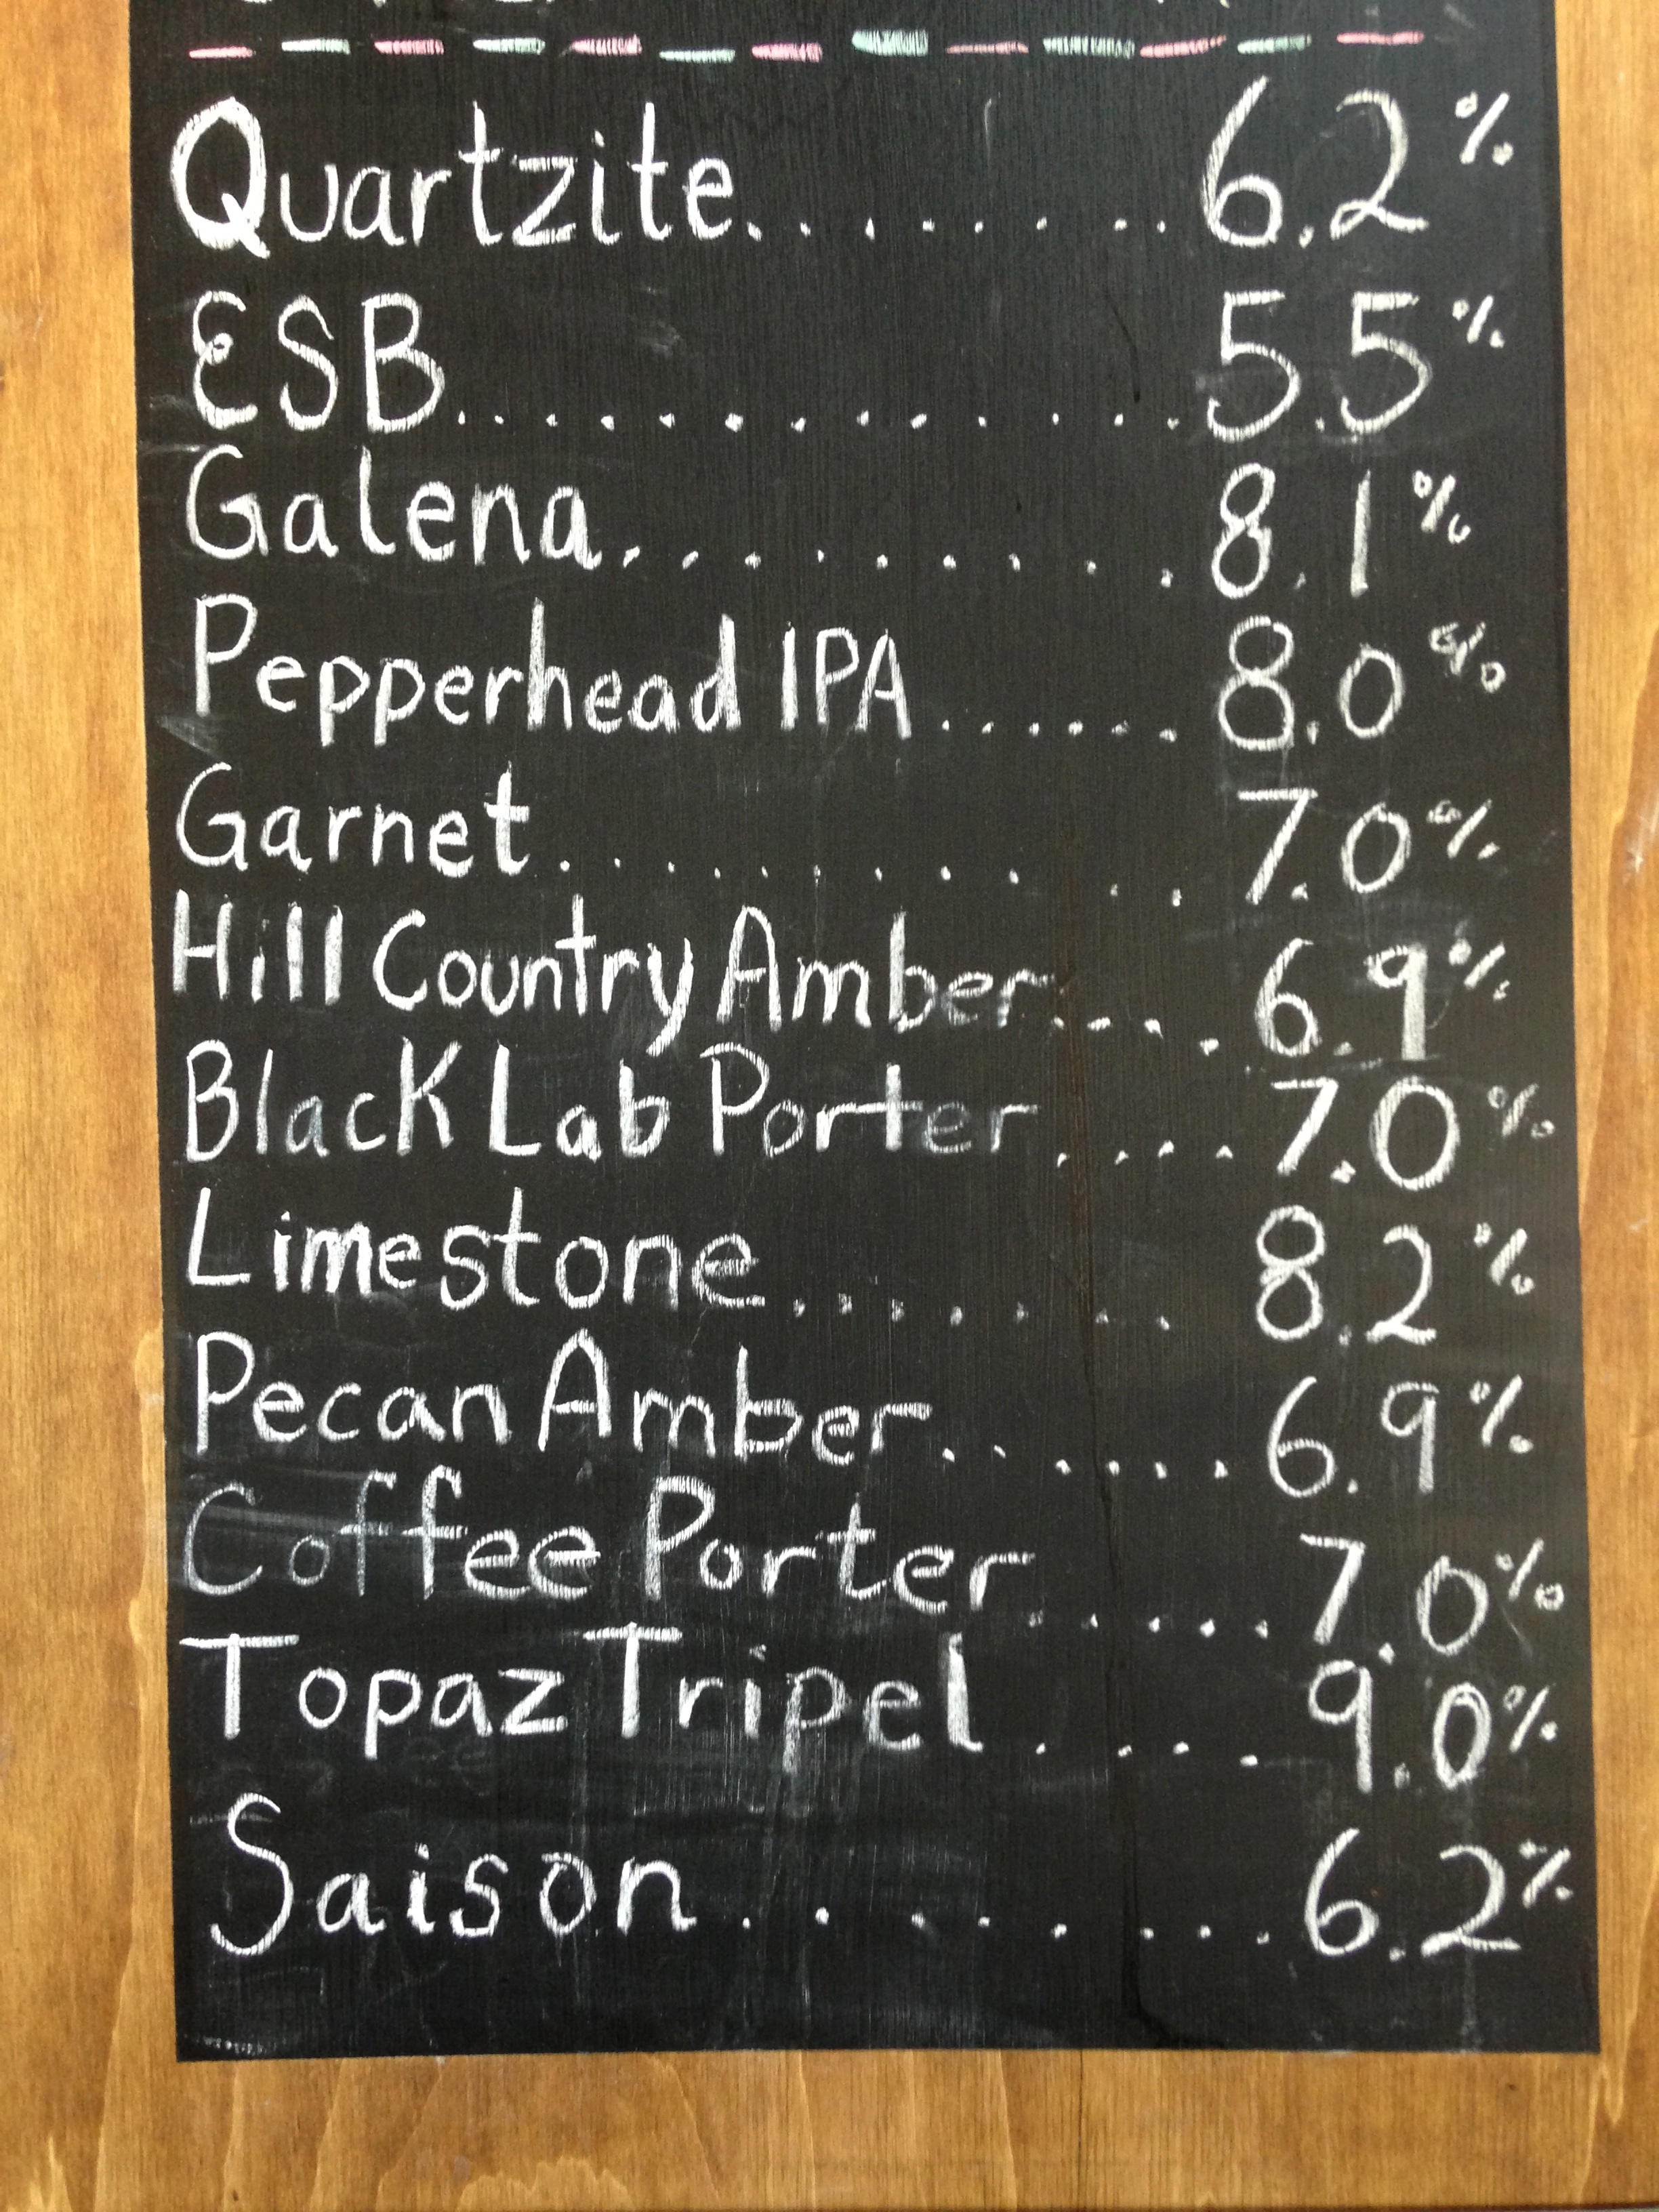 Quartzite......... 6.2%
ESB............. 5.5%
Galena.......... 8.1%
Pepperhead IPA...... 8.0%
Garnet.......... 7.0%
Hill Country Amber.... 6.9%
Black Lab Porter.... 7.0%
Limestone........ 8.2%
Pecan Amber...... 6.9%
Coffee Porter..... 7.0%
Topaz Tripel.... 9.0%
Saison........ 6.2%